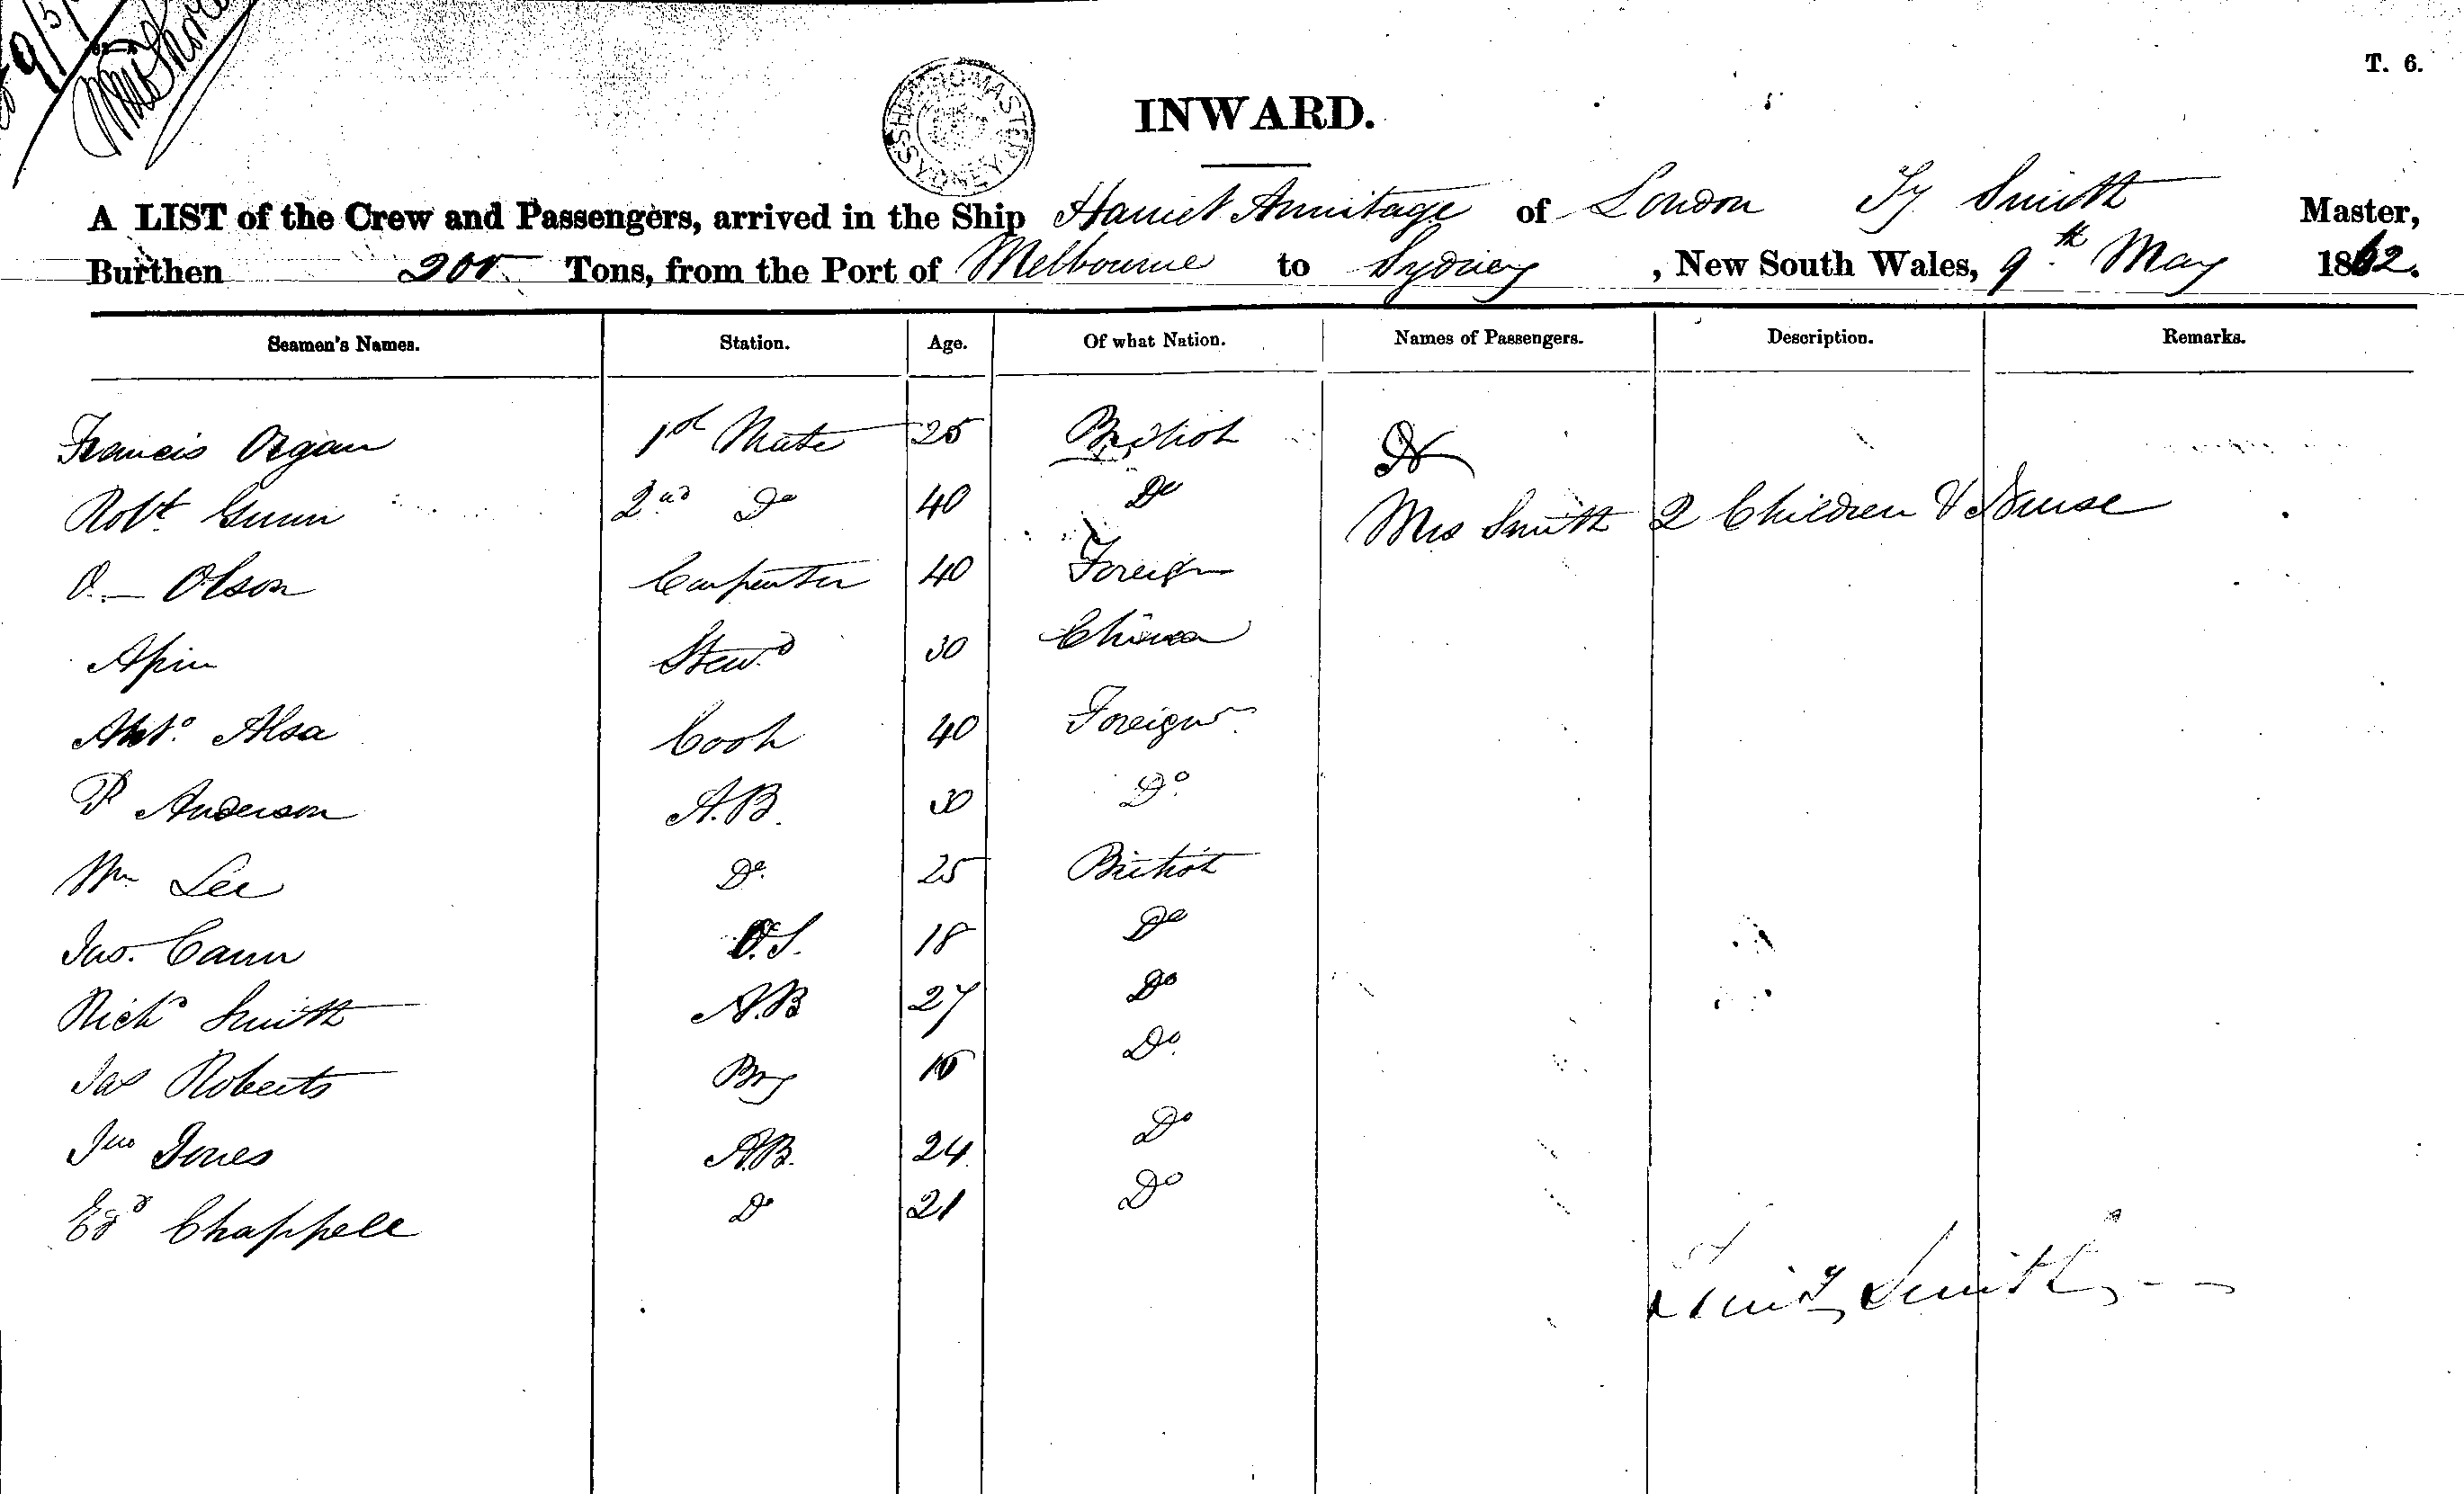 T. 6.
SHIPPING MASTER SYDNEY
INWARD.
A LIST of the Crew and Passengers, arrived in the Ship Harriet Armitage of London Ty Smith Master,
Burthen Tons, from the Port of Melbourne to Sydney, New South Wales, 9th May 1862.
Seamen's Names. Station. Age. Of what Nation. Names of Passengers. Description. Remarks.
Francis Organ 1st Mate 25 British
Robt Gunn 2nd Do 40 Do Mrs Smith 2 Children & Nurse
O Olson Carpenter 40 Foreign
Apin Stewd 30 China
Anto. Alsa Cook 40 Foreign
P Anderson A.B. 30 Do
Wm Lee Do 25 British
Jno. Cann O.S. 18 Do
Richd Smith A.B 27 Do
Jas Roberts Boy Do
Jno Jones A.B. 24 Do
Edd Chappell Do 21 Do
Smith